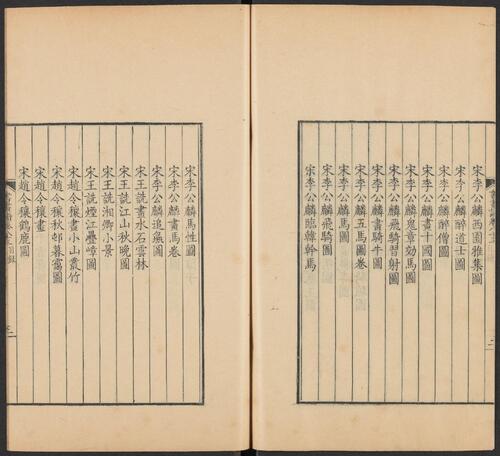 宋李公麟西園雅集圖
宋李公麟醉道士圖
宋李公麟醉僧圖
宋李公麟畫十國圖
宋李公麟鬼章効馬圖
宋李公麟飛騎習射圖
宋李公麟畫騎牛圖
宋李公麟五馬圖卷
宋李公麟馬圖
宋李公麟飛騎圖
宋李公麟臨韓幹馬
宋李公麟馬性圖
宋李公麟畫馬卷
宋李公麟追〓圖
宋王詵畫水石雲林
宋王詵江山秋晚圖
宋王詵湘鄉小景
宋王詵煙江疊嶂圖
宋趙令穰畫小山叢竹
宋趙令穰秋邨暮靄圖
宋趙令穰畫
宋趙令穰鶴鹿圖